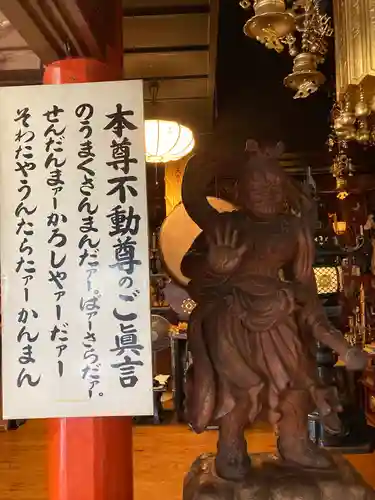 本尊不動尊のご真言
のうまくさんまんだァー。ばァーさらだァー。
せんだんまァーかろしやァーだァー
そわたやうんたらたァーかんまん